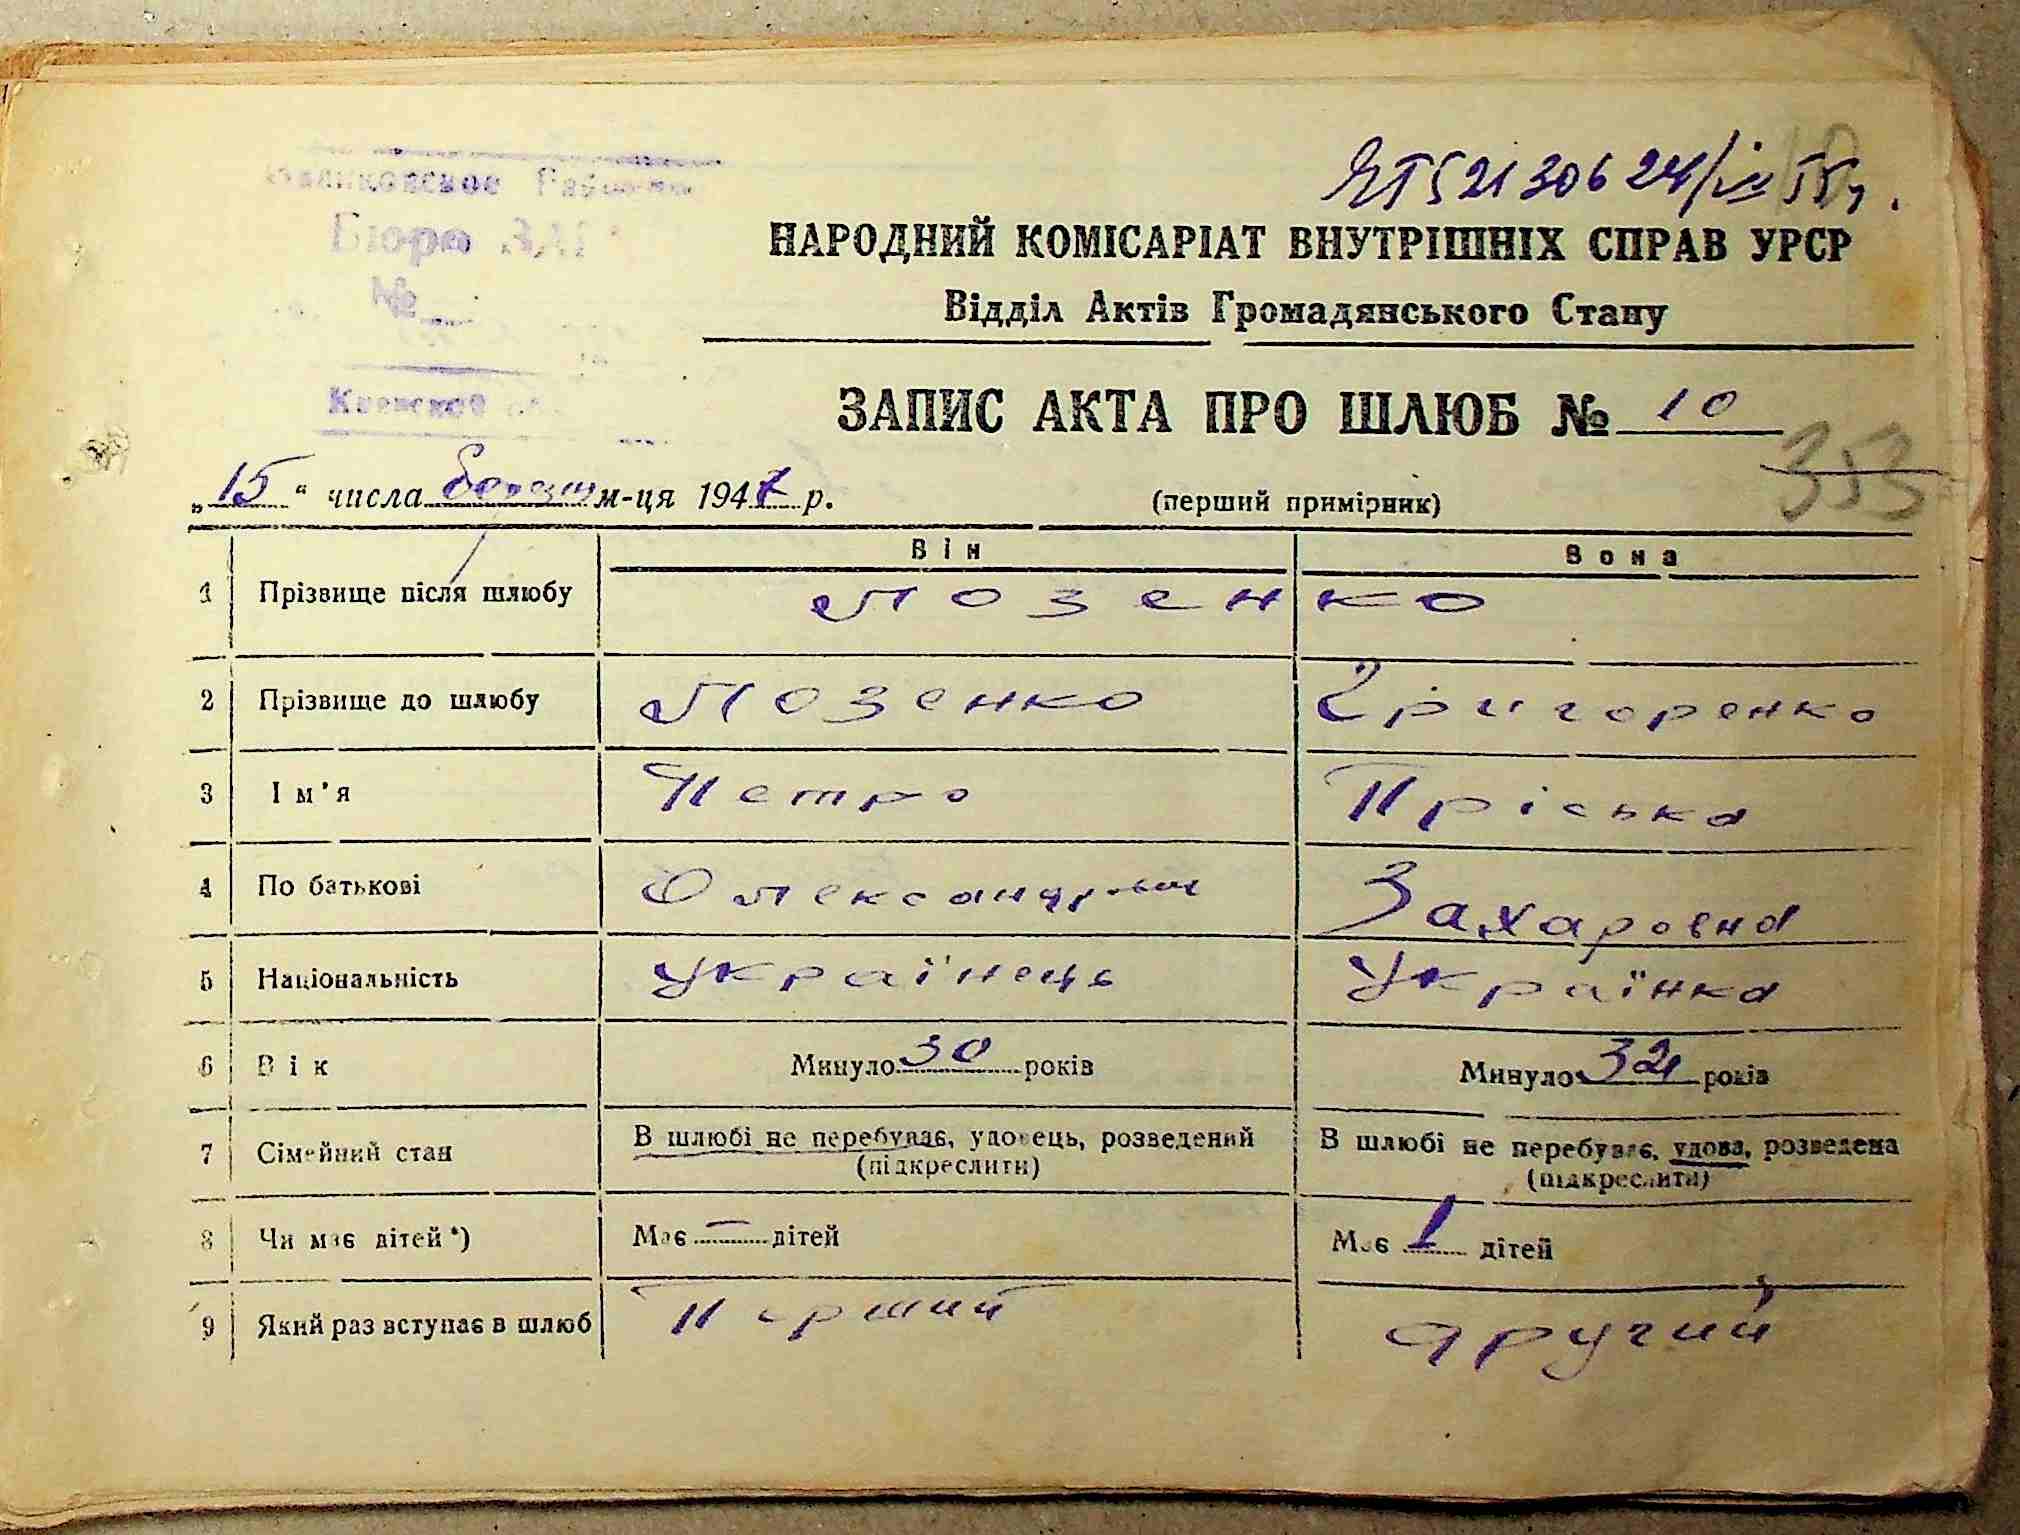 Бюро ЗАГС
№
ЯТ 521306 24/
НАРОДНИЙ КОМІСАРІАТ ВНУТРІШНІХ СПРАВ УРСР
Відділ Актів Громадянського Стану
Киевской
ЗАПИС АКТА ПРО ШЛЮБ № 10
353
„15“ числа березня м-ця 1947 р. (перший примірник)
Він Вона
1 Прізвище після шлюбу Лозенко
2 Прізвище до шлюбу Лозенко Григоренко
3 Ім'я Петро Пріська
4 По батькові Олександрович Захаровна
5 Національність Українець Українка
6 Вік Минуло 30 років Минуло 32 років
7 Сімейний стан В шлюбі не перебуває, удовець, розведений В шлюбі не перебуває, удова, розведена
(підкреслити) (підкреслити)
8 Чи має дітей*) Має — дітей Має 1 дітей
9 Який раз вступає в шлюб Перший другий